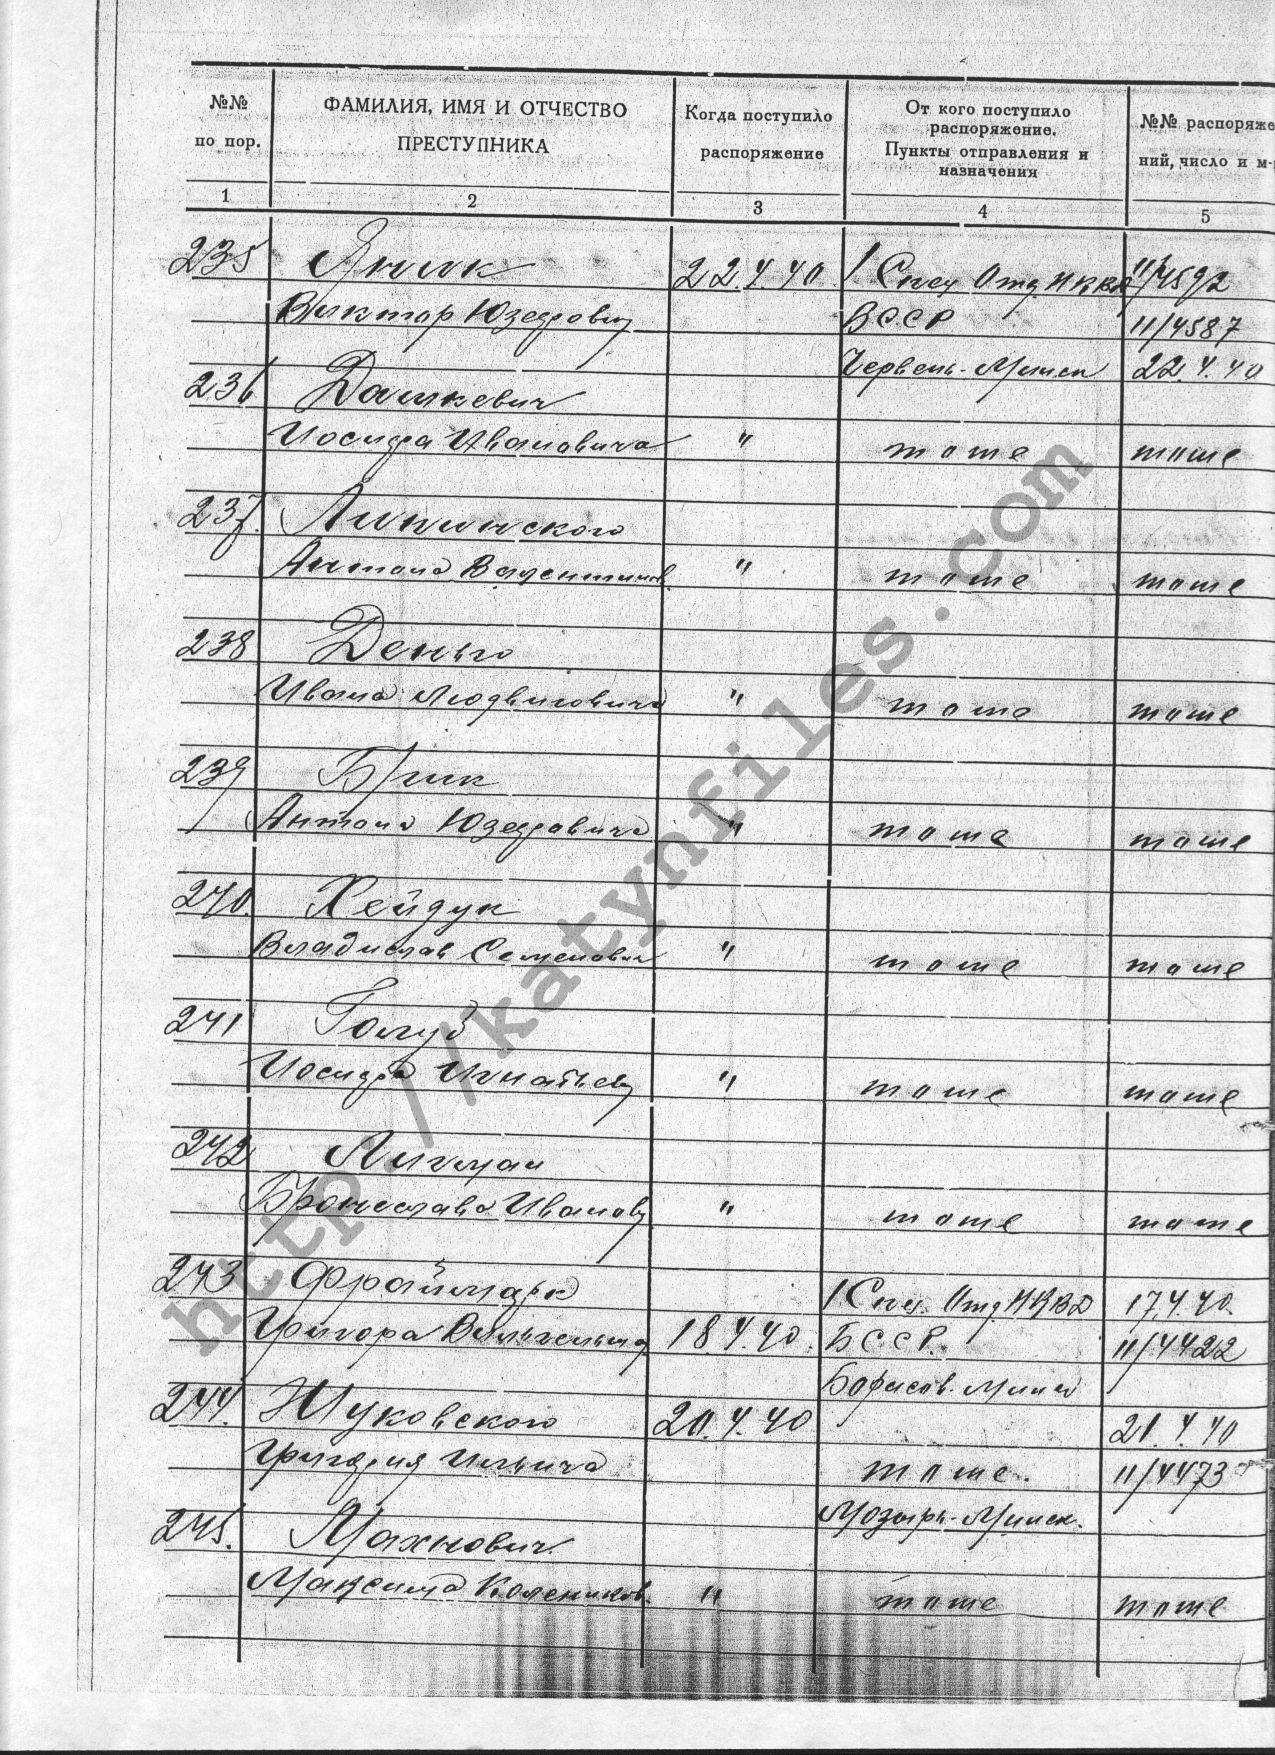 №№ по пор.
ФАМИЛИЯ, ИМЯ И ОТЧЕСТВО ПРЕСТУПНИКА
Когда поступило распоряжение
От кого поступило распоряжение. Пункты отправления и назначения
№№ распоряже ний, число и м-
1 2 3 4 5
235 22.4.40 1 Спец Отд НКВД 11/4592
Виктор Юзефович БССР 11/4587
Червень-Минск 22.4.40
236 Дашкевич
Иосифа Ивановича " тоже тоже
237. Липинского
Антона Валентинов. " тоже тоже
238 Денько
Ивана Людвиговича " тоже тоже
239
Антона Юзефовича " тоже тоже
240. Хейдук
Владислав Семенович " тоже тоже
241 Голуб
Иосифа Игнатьев " тоже тоже
242
Бронислава Иванов " тоже тоже
243 Фраймарк 1 Спец. Отд НКВД 17.4.40.
18.4.40. БССР. 11/4422
Борисов-Минск
244. Жуковского 20.4.40 21.4.40
Григория Ильича тоже. 11/4473
Мозырь-Минск.
245. Махнович
Максима " тоже тоже
http://katynfiles.com